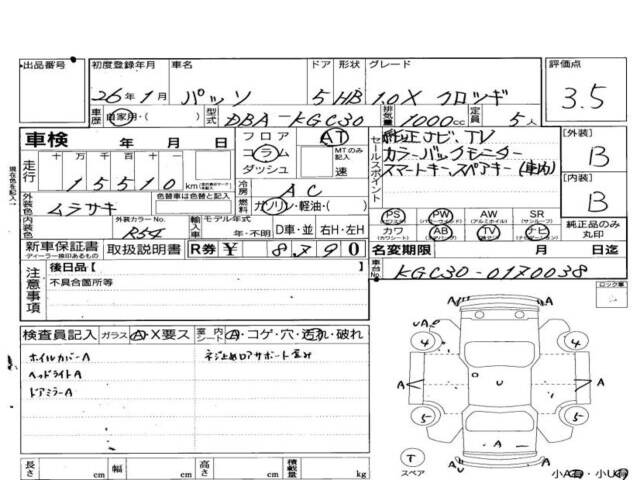 出品番号 初度登録年月 車名 ドア 形状 グレード 評価点
26年1月 パッソ 5 HB 1.0X クロツギ 3.5
車歴 自家用・( ) 型式 DBA-KGC30 排気量 1000cc 定員 5人
車検 年 月 日 フロア コラム ダッシュ AT MTのみ記入 速
セールスポイント 純正ナビ、TV
カラーバックモニター
スマートキー、スペアキー(車内)
[外装] B
走行 十万千百十 15510km
冷房 AC
[内装] B
外装色 ムラサキ 色替車は色替と記入 燃料 ガソリン・軽油・( )
PS PW AW SR
(パワステ) (パワーウィンドウ) (アルミホイル) (サンルーフ)
内装色 外装カラーNo. R54 輸入車 モデル年式 年・不明 D車・並 右H・左H
カワ AB TV ナビ 純正品のみ丸印
(カワシート) (エアバッグ)
新車保証書 取扱説明書 R券 ¥ 8790
ディーラー捺印あるもの
名変期限 月 日迄
現在色を記入
注意事項 後日品【 】
不具合箇所等
車台No. KGC30-0170038
ロック車
検査員記入 ガラス A・X要ス 室内シート A・コゲ・穴・汚れ・破れ
ホイルカバーA
ヘッドライトA
ドアミラーA
A A 4 4
A U A
5 5
A
T スペア
A U
小A有・小U有
長さ cm 幅 cm 高さ cm 積載量 kg